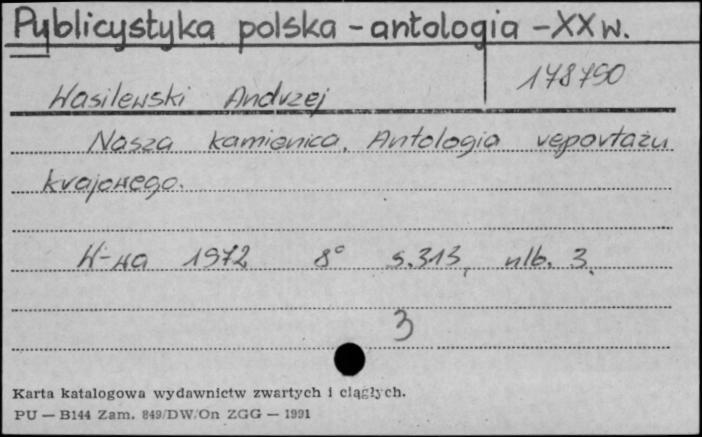 Publicystyka polska - antologia - XX w.
178790
Wasilewski Andrzej
Nasza kamienica. Antologia reportażu
krajowego.
W-wa 1972 8° s. 313, nlb. 3.
3
Karta katalogowa wydawnictw zwartych i ciągłych.
PU — B144 Zam. 849/DW/On ZGG — 1991